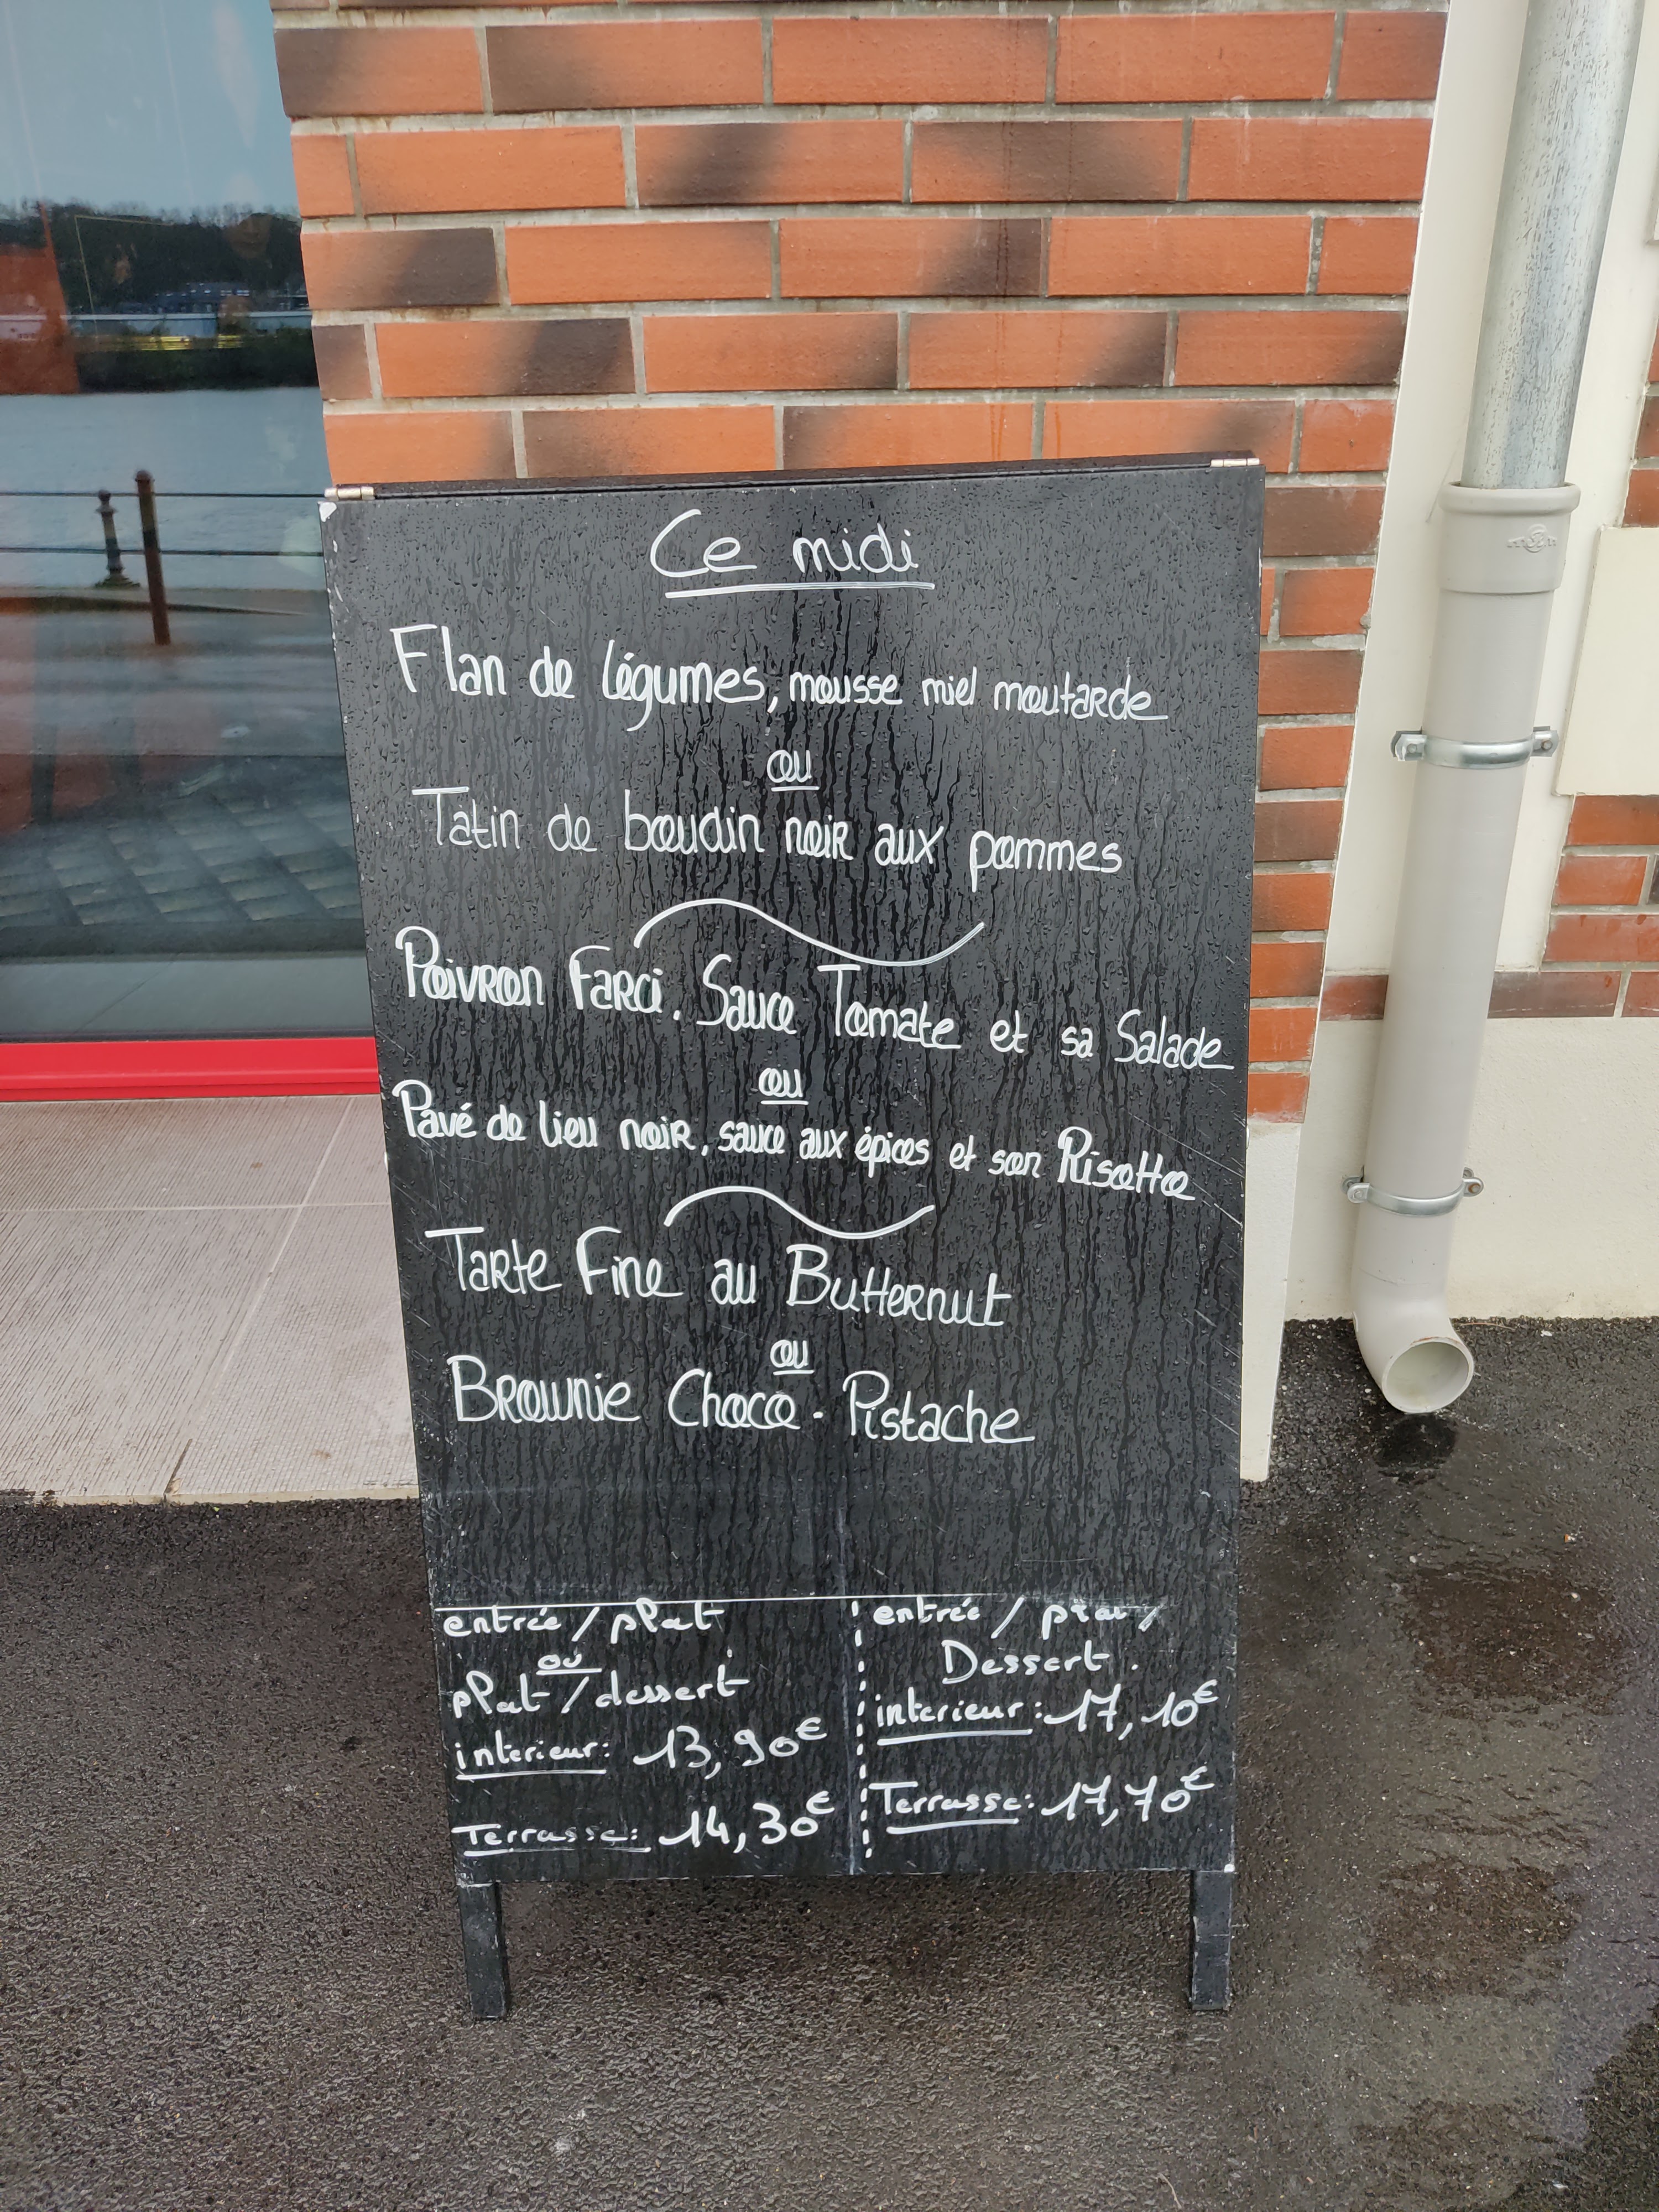 Ce midi
Flan de légumes, mousse miel moutarde
ou
Tatin de boudin noir aux pommes
Poivron Farci. Sauce Tomate et sa Salade
ou
Pavé de lieu noir, sauce aux épices et son Risotto
Tarte Fine au Butternut
ou
Brownie Choco - Pistache
entrée / plat
ou
plat / dessert
interieur: 13,90€
Terrasse: 14,30€
entrée / plat /
Dessert.
interieur: 17,10€
Terrasse: 17,70€